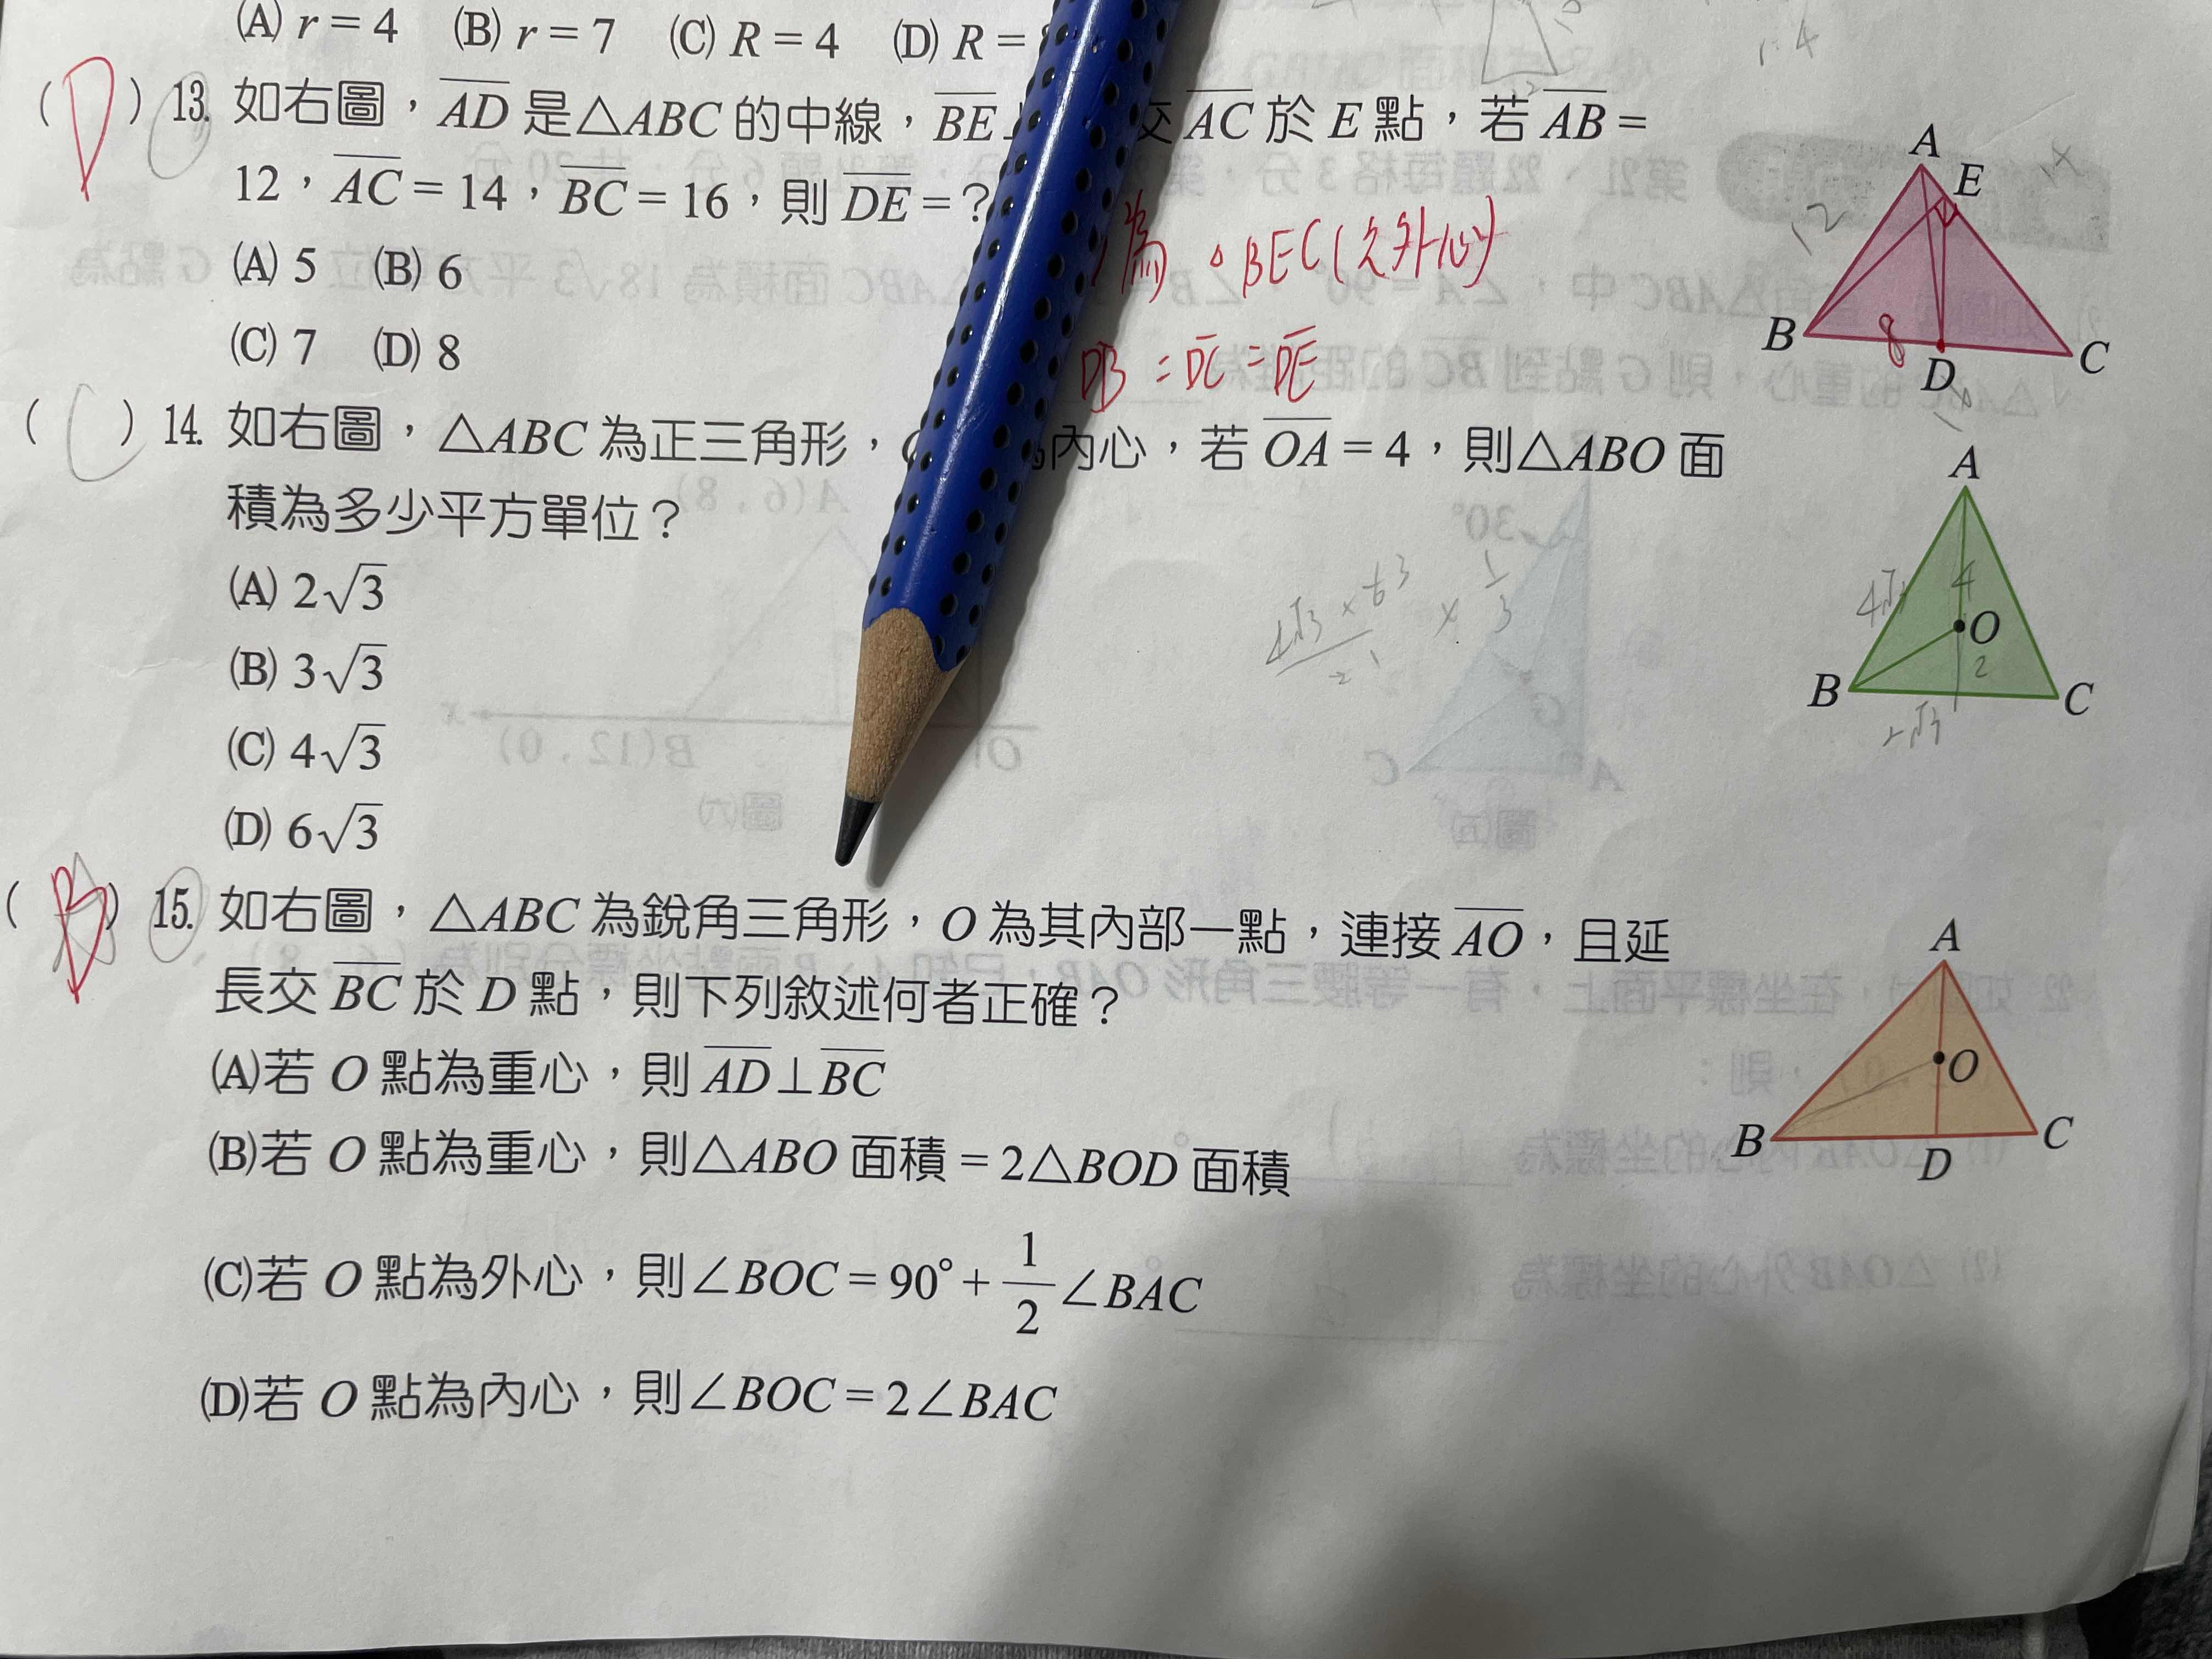 (A) r = 4 (B) r = 7 (C) R = 4 (D) R =
( D ) 13. 如右圖，AD 是△ABC 的中線，BE⊥ 交 AC 於 E 點，若 AB =
12，AC = 14，BC = 16，則 DE = ?
(A) 5 (B) 6
(C) 7 (D) 8
為 △BEC(之外心)
DB = DC = DE
A
E
12
B
8
D
C
( C ) 14. 如右圖，△ABC 為正三角形， 內心，若 OA = 4，則△ABO 面
積為多少平方單位？
(A) 2√3
(B) 3√3
(C) 4√3
(D) 6√3
4√3 × 6 3 × 1/3
2 1
A
4√3
4
O
2
B
C
2√3
( B ) 15. 如右圖，△ABC 為銳角三角形，O 為其內部一點，連接 AO，且延
長交 BC 於 D 點，則下列敘述何者正確？
(A)若 O 點為重心，則 AD⊥BC
(B)若 O 點為重心，則△ABO 面積 = 2△BOD 面積
(C)若 O 點為外心，則∠BOC = 90° + 1/2 ∠BAC
(D)若 O 點為內心，則∠BOC = 2∠BAC
A
O
B
D
C